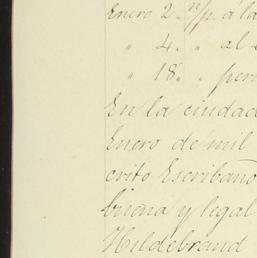 Enero 2. n/p. a la
" 4. " al
" 18. "
En la ciudad
Enero de mil
crito Escribano
buena y legal
Hildebrand